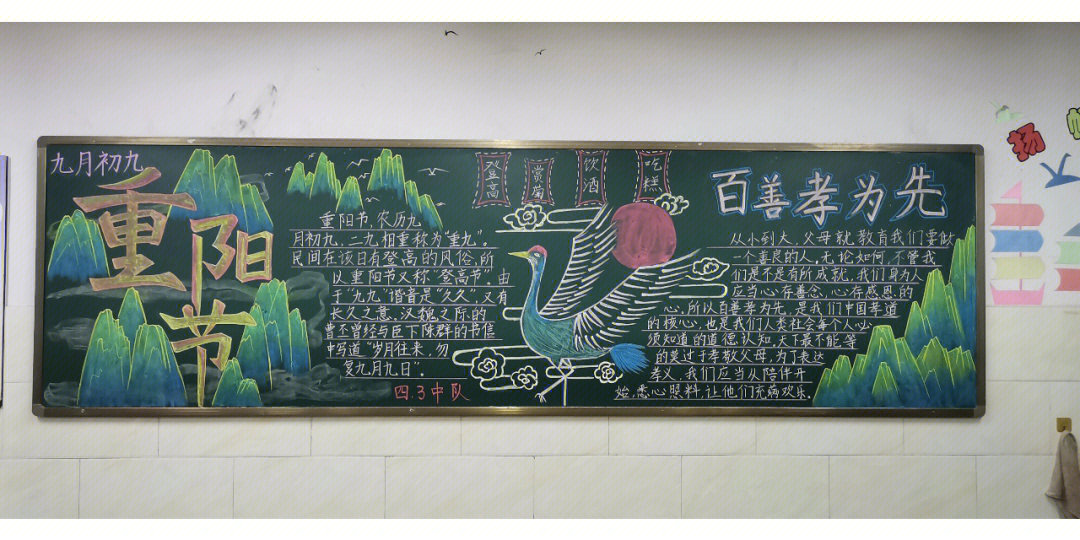 九月初九
重阳节
登高
赏菊
饮酒
吃糕
重阳节,农历九
月初九,二九相重称为“重九”。
民间在该日有登高的风俗,所
以重阳节又称“登高节”。由
于“九九”谐音是“久久”,又有
长久之意,汉魏之际的
曹丕曾经与臣下陈群的书信
中写道“岁月往来,勿
复九月九日”。
四.3中队
百善孝为先
从小到大,父母就教育我们要做
一个善良的人,无论如何,不管我
们是不是有所成就,我们身为人
应当心存善念,心存感恩的
心,所以百善孝为先,是我们中国孝道
的核心,也是我们人类社会每个人必
须知道的道德认知,天下最不能等
的莫过于孝敬父母,为了表达
孝义,我们应当从陪伴开
始,悉心照料,让他们充满欢乐.
扬